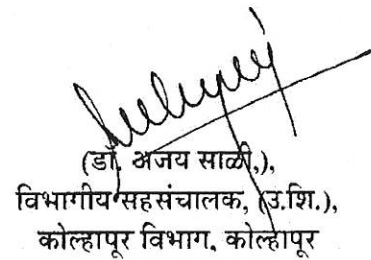 (डॉ. अजय साळी,),
विभागीय सहसंचालक, (उ.शि.),
कोल्हापूर विभाग, कोल्हापूर